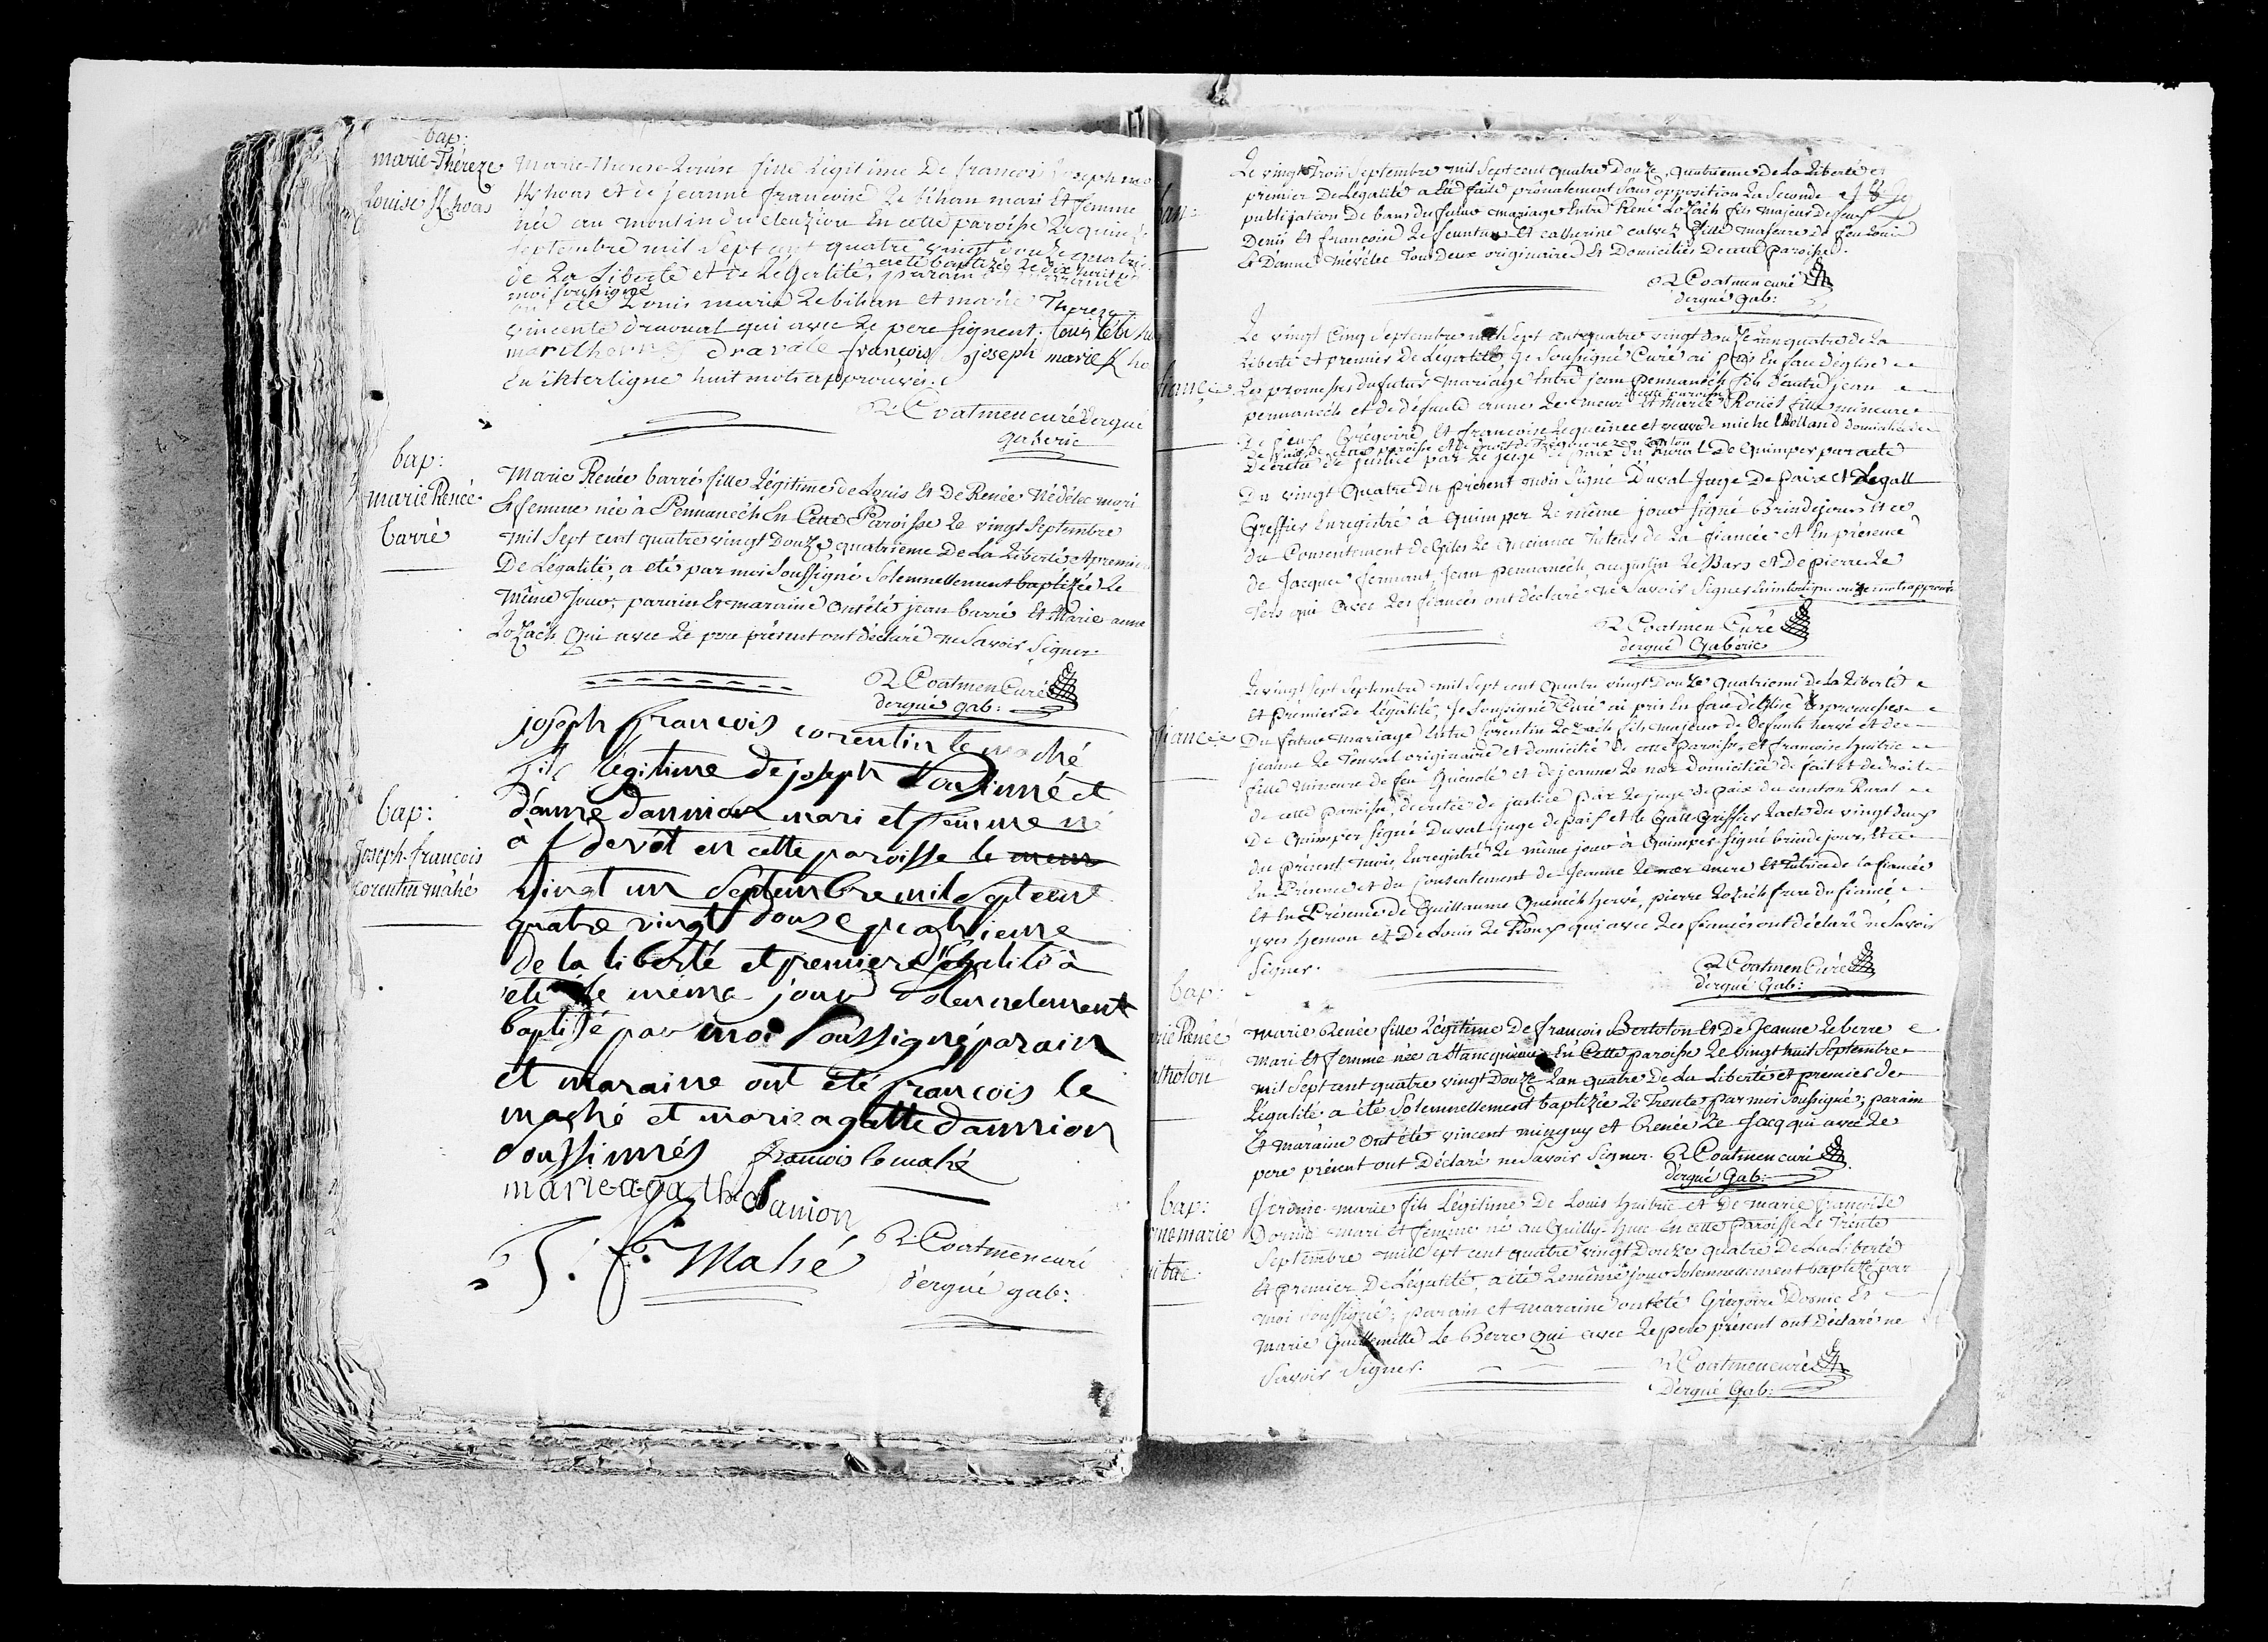 bap:
marie-Théreze
Louise K/hoas
Marie-Therese-Louise fille Légitime De francois Joseph
K/hoas et de jeanne francoise Le bihan mari Et femme
née au moulin du cleuziou En cette paroisse Le quinze
septembre mil sept cent quatre vingt douze quatri
de La Liberté et de L'égalité, a été baptizée Le dix huit par
moi soussigné parain maraine
ont été Louis marie Lebihan et marie Thereze
vincente dravual qui avec Le pere signent; louis lebi
dravale françois joseph marie K/ho
En interligne huit mots approuvés.
R Coatmen curé d'ergué
gaberic
bap:
marie Renée
barré
Marie Renée barré fille Légitime de Louis Et De Renée Nédélec mari
Et femme née à Pennanéch En Cette Paroisse Le vingt Septembre
mil Sept cent quatre vingt Douze, quatrieme De La Liberté et premie
De L'égalité, a eté par moi Soussigné Solemnellement baptizée Le
même Jour; parain Et maraine ont été jean barré Et Marie anne
Lozach qui avec Le pere présent ont déclaré ne Savoir Signer.
R Coatmen Curé
d'ergué gab:
bap:
Joseph-francois
corentin mahé
joseph francois corentin le mahé
fils légitime de joseph Soussinné et
d'anne dannion mari et femme né
à K/devot en cette paroisse le
vingt un Septembre mil Sept cent
quatre vingt douze quatrieme
de la liberté et premiere d'Egalité à
eté le même jour Solemnelement
baptisé par moi Soussigné parain
et maraine ont été francois le
mahé et marie agatte dannion
soussinnés francois le mahé
marie-agathe danion
J. f. Mahé
R. Coatmen curé
d'ergué gab:
Le vingt Trois Septembre mil Sept cent quatre Douze, quatrieme De La Liberté et
premier De L'égalité a été faite prônalement Sans opposition La Seconde
publication De bans du futur mariage Entre René Lozach fils majeur de feus
Denis Et francoise Le feunteun Et catherine calvez fille majeure De feu Louis
Et D'anne Nédélec Tous Deux originaires Et Domiciliés De cette Paroisse.
R Coatmen curé
d'ergué gab:
fiance
Le vingt Cinq Septembre mil Sept cent quatre vingt douze L'an quatre de La
Liberté et premier De L'égalité Je Soussigné Curé ai pris En face d'église
Les promesses du futur mariage Entre jean Pennanéch fils d'autre jean
pennanéch et de défunte anne Le meur de cette paroisse Et Marie Rouès fille mineure
De feus Grégoire Et francoise Lequeinec et veuve de michel Rolland domiciliée
De fait De cette paroisse et De droit De canton
Décrétée De justice par Le juge de paix du Rural De Quimper par acte
Du vingt Quatre Du présent mois Signé Duval Juge De paix Et Legall
Greffier Enregistré à Quimper Le même jour Signé Brindejonc Et ce
du Consentement de Giles Le Queinnec Tuteur de La fiancée et En présence
de Jacques fermant, Jean pennanéch, augustin Le Bars et De pierre Le
Pors qui avec Les fiancés ont déclaré ne Savoir Signer En interligne onze mots approuvés
R Coatmen Curé
d'ergué Gaberic
fiance
Le vingt Sept Septembre mil Sept cent Quatre vingt Douze Quatrieme de La Liberté
Et Premier De L'égalité, Je Soussigné Curé ai pris En face d'église Les promesses
Du futur mariage Entre Corentin Lozach fils majeur de Defunts hervé et de
jeanne Le Tonval originaire et domicilié De cette paroisse, et francoise huitric
fille mineure de feu Guénolé et de jeanne Le noer domiciliée de fait et de droit
de cette paroisse, décrétée de justice par Le juge de paix du canton Rural
De Quimper Signé Duval juge de paix et le Gall Greffier L'acte du vingt deux
du présent mois Enregistré Le même jour à Quimper Signé brindejonc, Et ce
En Présence et du Consentement de Jeanne Le noer mere Et tutrice de la fiancée
Et En Présence de Guillaume Quenéch hervé, pierre Lozach frere du fiancé,
yves hemon et De Louis Le Roux qui avec Les fiancés ont déclaré ne Savoir
Signer.
R Coatmen Curé
d'ergué Gab:
bap:
rie Renée
tholon
Marie Renée fille Légitime De francois Bertolon Et De Jeanne Leberre
Mari Et femme née à Stancquéau En Cette paroisse Le vingt huit Septembre
mil Sept cent quatre vingt Douze L'an quatre De La Liberté et premier de
L'égalité a été Solemnellement baptizée Le Trente par moi Soussigné; parain
Et maraine ont été vincent minguy et Renée Le Jacq qui avec Le
pere présent ont Déclaré ne Savoir Signer. R Coatmen curé
d'ergué Gab:
bap:
me marie
itric
Jerome-marie fils Légitime De Louis huitric et De marie francoise
Dornic mari Et femme né au Quilly-huec En cette Paroisse Le Trente
Septembre mil Sept cent quatre vingt Douze quatre De La Liberté
Et premier De L'égalité, a été Le même jour Solemnellement baptizé par
moi Soussigné; parain et maraine ont été Grégoire Dornic Et
marie Guillemette Le Berre qui avec Le pere présent ont Déclaré ne
Savoir Signer.
R Coatmen curé
D'ergué Gab: